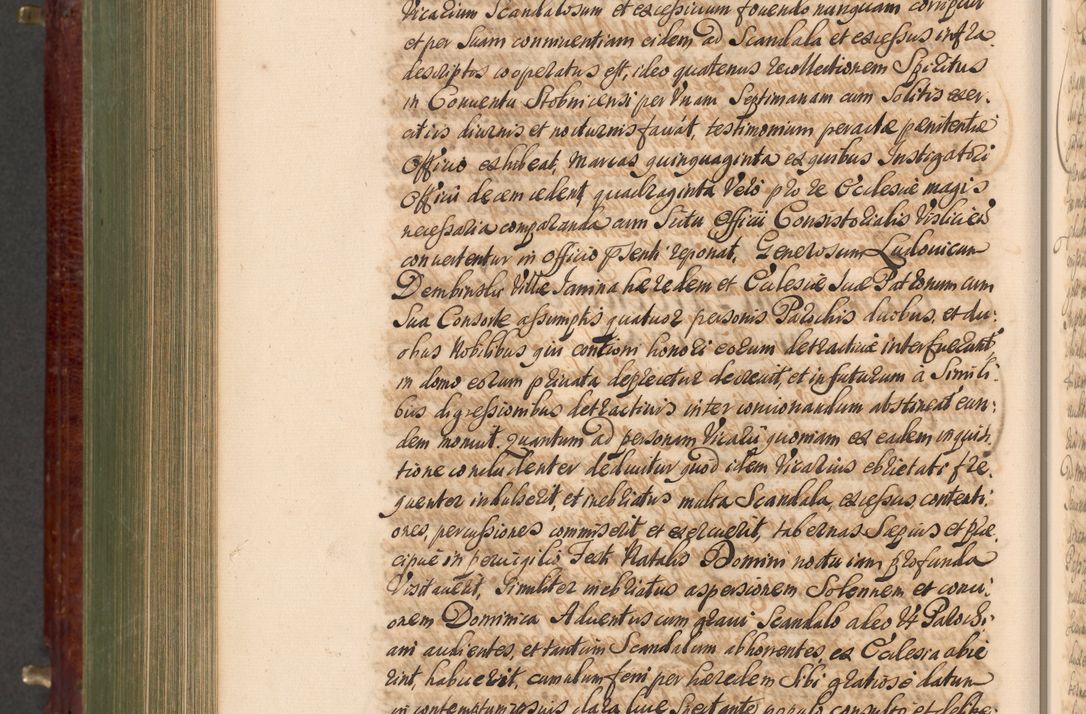 Vicarium Scandalosum et excessivum fovendo nunquam corripuit
et per Suam conniventiam eidem ad Scandala et excessus infra
descriptos cooperatus est, ideo quatenus recollectionem Spiritus
in Conventu Stobnicensi per Unam Septimanam cum Solitis exer,
citiis diurnis et nocturnis faciat, testimonium peractæ pænitentiæ
Officio exhibeat, Marcas quinquaginta ex quibus Instigatori
Officii decem cedent quadraginta Vero pro re Ecclesiæ magis
necessaria comparanda cum Scitu Officii Consistorialis Visliciens
convertentur in Officio psenti reponat, Generosum Ludovicum
Dembinski Villæ Janina hæredem et Ecclesiæ Suæ Patronum cum
Sua Consorte assumptis quatuor personis Parochis duobus, et du,
obus Nobilibus qui contioni honori eorum detractivæ interfuerunt
in domo eorum privata deprecetur decrevit, et in futurum à Simili,
bus digressionibus detractivis inter concionandum abstineat eun,
dem monuit. Quantum ad personam Vicarii quoniam ex eadem inquisi,
tione concludenter deducitur quod idem Vicarius ebrietati fre,
quenter indulserit, et inebriatus multa Scandala, excessus, contenti,
ones, percussiones commiserit et exercuerit, tabernas Sæpius et præ,
cipuè in pervigilio Festi Natalis Domini noctu iam profunda
Visitaverit, Similiter inebriatus aspersionem Solennem et conci,
onem Dominica Adventus cum gravi Scandalo adeo Ut Parochi,
ani audientes, et tantum Scandalum abhorrentes ex Ecclesia abie
rint, habuerit, cumulum feni per hæredem Sibi gratiosè datum
in contemptum